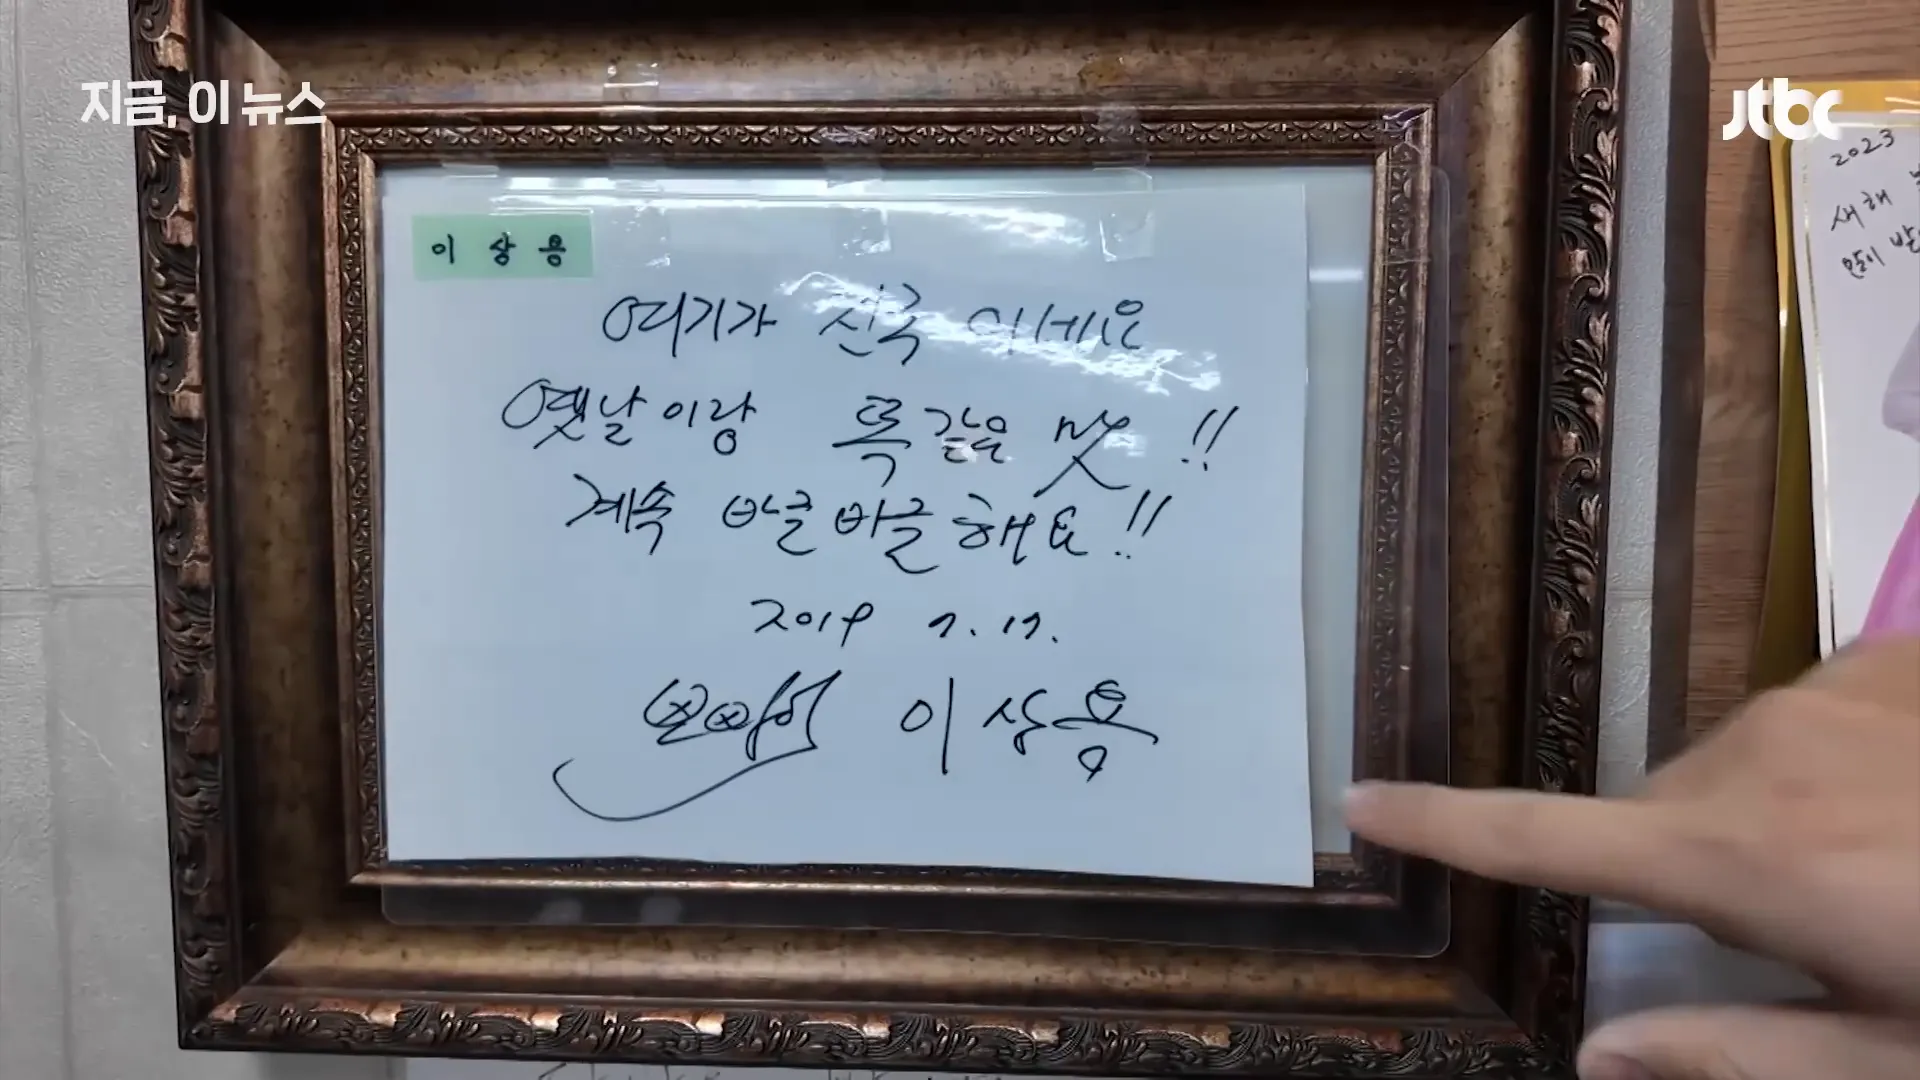 지금, 이 뉴스
jtbc
이 상 용
여기가 진국
옛날이랑 똑같은 맛 !!
계속 바글바글해요!!
2019 7. 17.
뽀빠이 이상용
2023
새해
많이 받